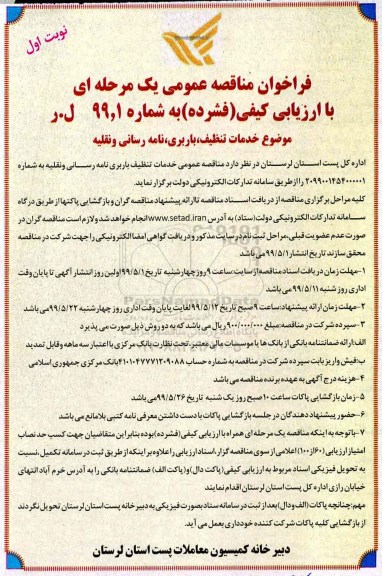 نوبت اول
فراخوان مناقصه عمومی یک مرحله ای
با ارزیابی کیفی(فشرده)به شماره ۹۹,۱ ل.ر
موضوع خدمات تنظیف،باربری،نامه رسانی ونقلیه
اداره کل پست استان لرستان در نظر دارد مناقصه عمومی خدمات تنظیف باربری نامه رسانی ونقلیه به شماره
۲۰۹۹۰۰۱۴۵۴۰۰۰۰۰۱ را از طریق سامانه تدارکات الکترونیکی دولت برگزار نماید.
کلیه مراحل برگزاری مناقصه از دریافت اسناد مناقصه تاارائه پیشنهاد مناقصه گران و بازگشایی پاکتها از طریق درگاه
سامانه تدارکات الکترونیکی دولت(ستاد) به آدرس www.setad.iran انجام خواهد شد ولازم است مناقصه گران در
صورت عدم عضویت قبلی،مراحل ثبت نام در سایت مذکور و دریافت گواهی امضا الکترونیکی را جهت شرکت در مناقصه
محقق سازند تاریخ انتشار ۹۹/۵/۱ می باشد
۱-مهلت زمان دریافت اسناد مناقصه از سایت:ساعت ۹ روز چهارشنبه تاریخ ۹۹/۵/۱ اولین روز انتشار آگهی تا پایان وقت
اداری روز شنبه ۹۹/۵/۱۱ می باشد
۲-مهلت زمان ارائه پیشنهاد:ساعت ۹ صبح تاریخ ۹۹/۵/۱۲ لغایت پایان وقت اداری روز چهارشنبه ۹۹/۵/۲۲ می باشد
۳-سپرده شرکت در مناقصه:مبلغ ۹۰۰/۰۰۰/۰۰۰ ریال می باشد که به دو روش ذیل صورت می پذیرد
الف:ارائه ضمانتنامه بانکی از بانک ها یا موسسات مالی معتبر،تحت نظارت بانک مرکزی با اعتبار سه ماهه وقابل تمدید
ب:فیش واریز بابت سپرده شرکت در مناقصه به شماره حساب ۴۱۰۱۰۴۷۷۷۱۲۰۹۰۸۸ بانک مرکزی جمهوری اسلامی
۴-هزینه درج آگهی به عهده برنده مناقصه می باشد
۵-زمان بازگشایی پاکات ساعت ۱۰ صبح روز یک شنبه تاریخ ۹۹/۵/۲۶ می باشد
۶-حضور پیشنهاد دهندگان در جلسه بازگشایی پاکات با دست داشتن معرفی نامه کتبی بلامانع می باشد
۷-با توجه به اینکه مناقصه یک مرحله ای همراه با ارزیابی کیفی(فشرده)بوده بنابر این متقاضیان جهت کسب حد نصاب
امتیاز ارزیابی(۶۰ از ۱۰۰)اعلامی از سوی مناقصه گزار،اسناد ارزیابی را علاوه بر اینکه از طریق ثبت در سامانه تکمیل،نسبت
به تحویل فیزیکی اسناد مربوط به ارزیابی کیفی(پاکت دال)و(پاکت الف)ضمانتنامه بانکی را به آدرس خرم آباد انتهای
خیابان رازی اداره کل پست استان لرستان اقدام نمایند
مهم:چنانچه پاکات(الف ودال)بعد از ثبت در سامانه ستاد بصورت فیزیکی به دبیرخانه پست استان لرستان تحویل نگردند
از بازگشایی کلیه پاکات شرکت کننده خودداری بعمل می آید.
دبیر خانه کمیسیون معاملات پست استان لرستان